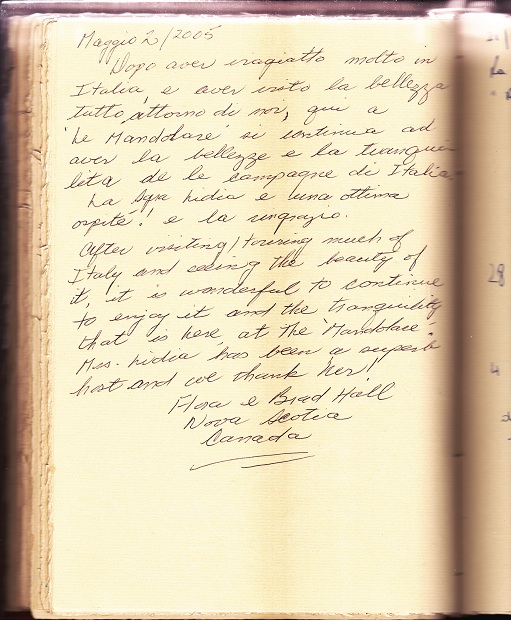 Maggio 2/2005
Dopo aver viagiatto molto in
Italia, e aver visto la bellezza
tutto attorno di noi, qui a
'Le Mandolare' si continua ad
aver la bellezze e la tranqui
lita de le campagne di Italia.
La Sgra Lidia e una ottima
ospite! e la ringrazio.
After visiting/touring much of
Italy and seeing the beauty of
it, it is wonderful to continue
to enjoy it and the tranquility
that is here, at the Mandolare.
Mrs. Lidia has been a superb
host and we thank her!
Flora e Brad Hall
Nova Scotia
Canada
28
4